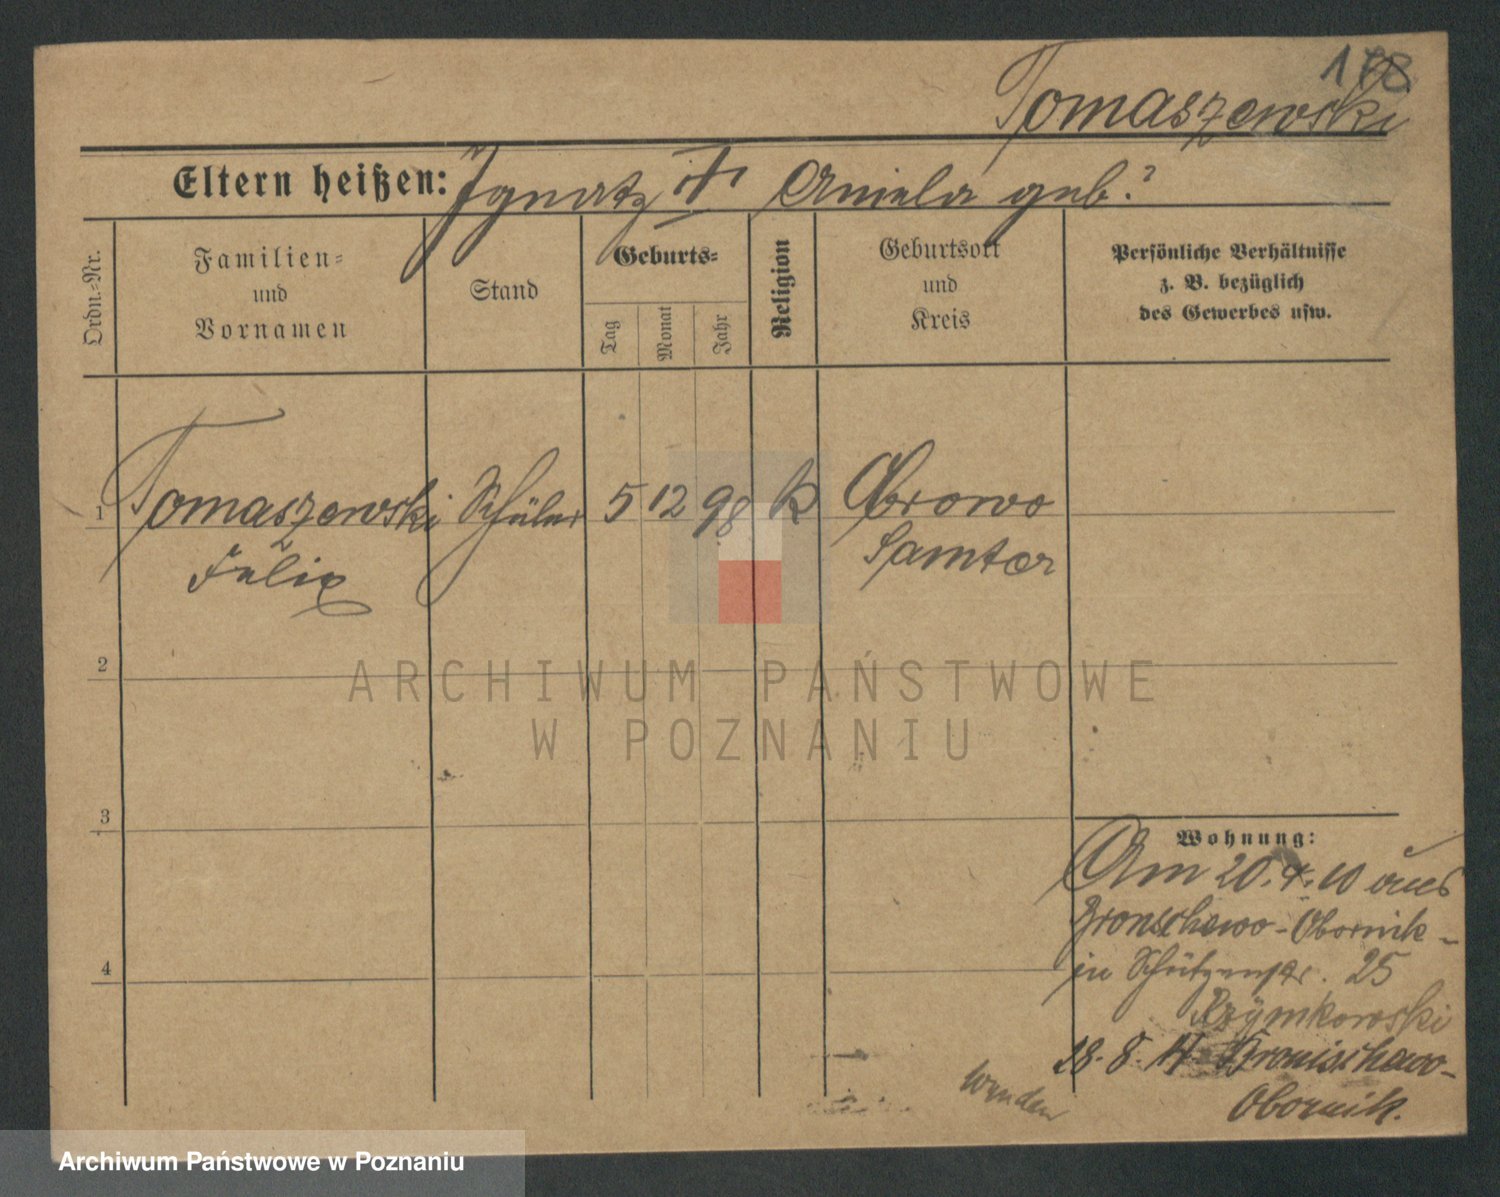 178
Tomaszewski
Eltern heißen: Ignatz + Aniela geb. ?
Ordn.-Nr.
Familien-
und
Vornamen
Stand
Geburts-
Tag
Monat
Jahr
Religion
Geburtsort
und
Kreis
Persönliche Verhältnisse
z. B. bezüglich
des Gewerbes usw.
1 Tomaszewski Schüler 5 12 98 K Obrowo
Felix Samter
2
3
4
Wohnung:
Am 20.4.10 aus
Bronschewo-Obornik-
in Schützenstr. 25
Rzymkowski
28.8.14 Bronischewo-
Obornik.
wenden
ARCHIWUM PAŃSTWOWE
W POZNANIU
Archiwum Państwowe w Poznaniu